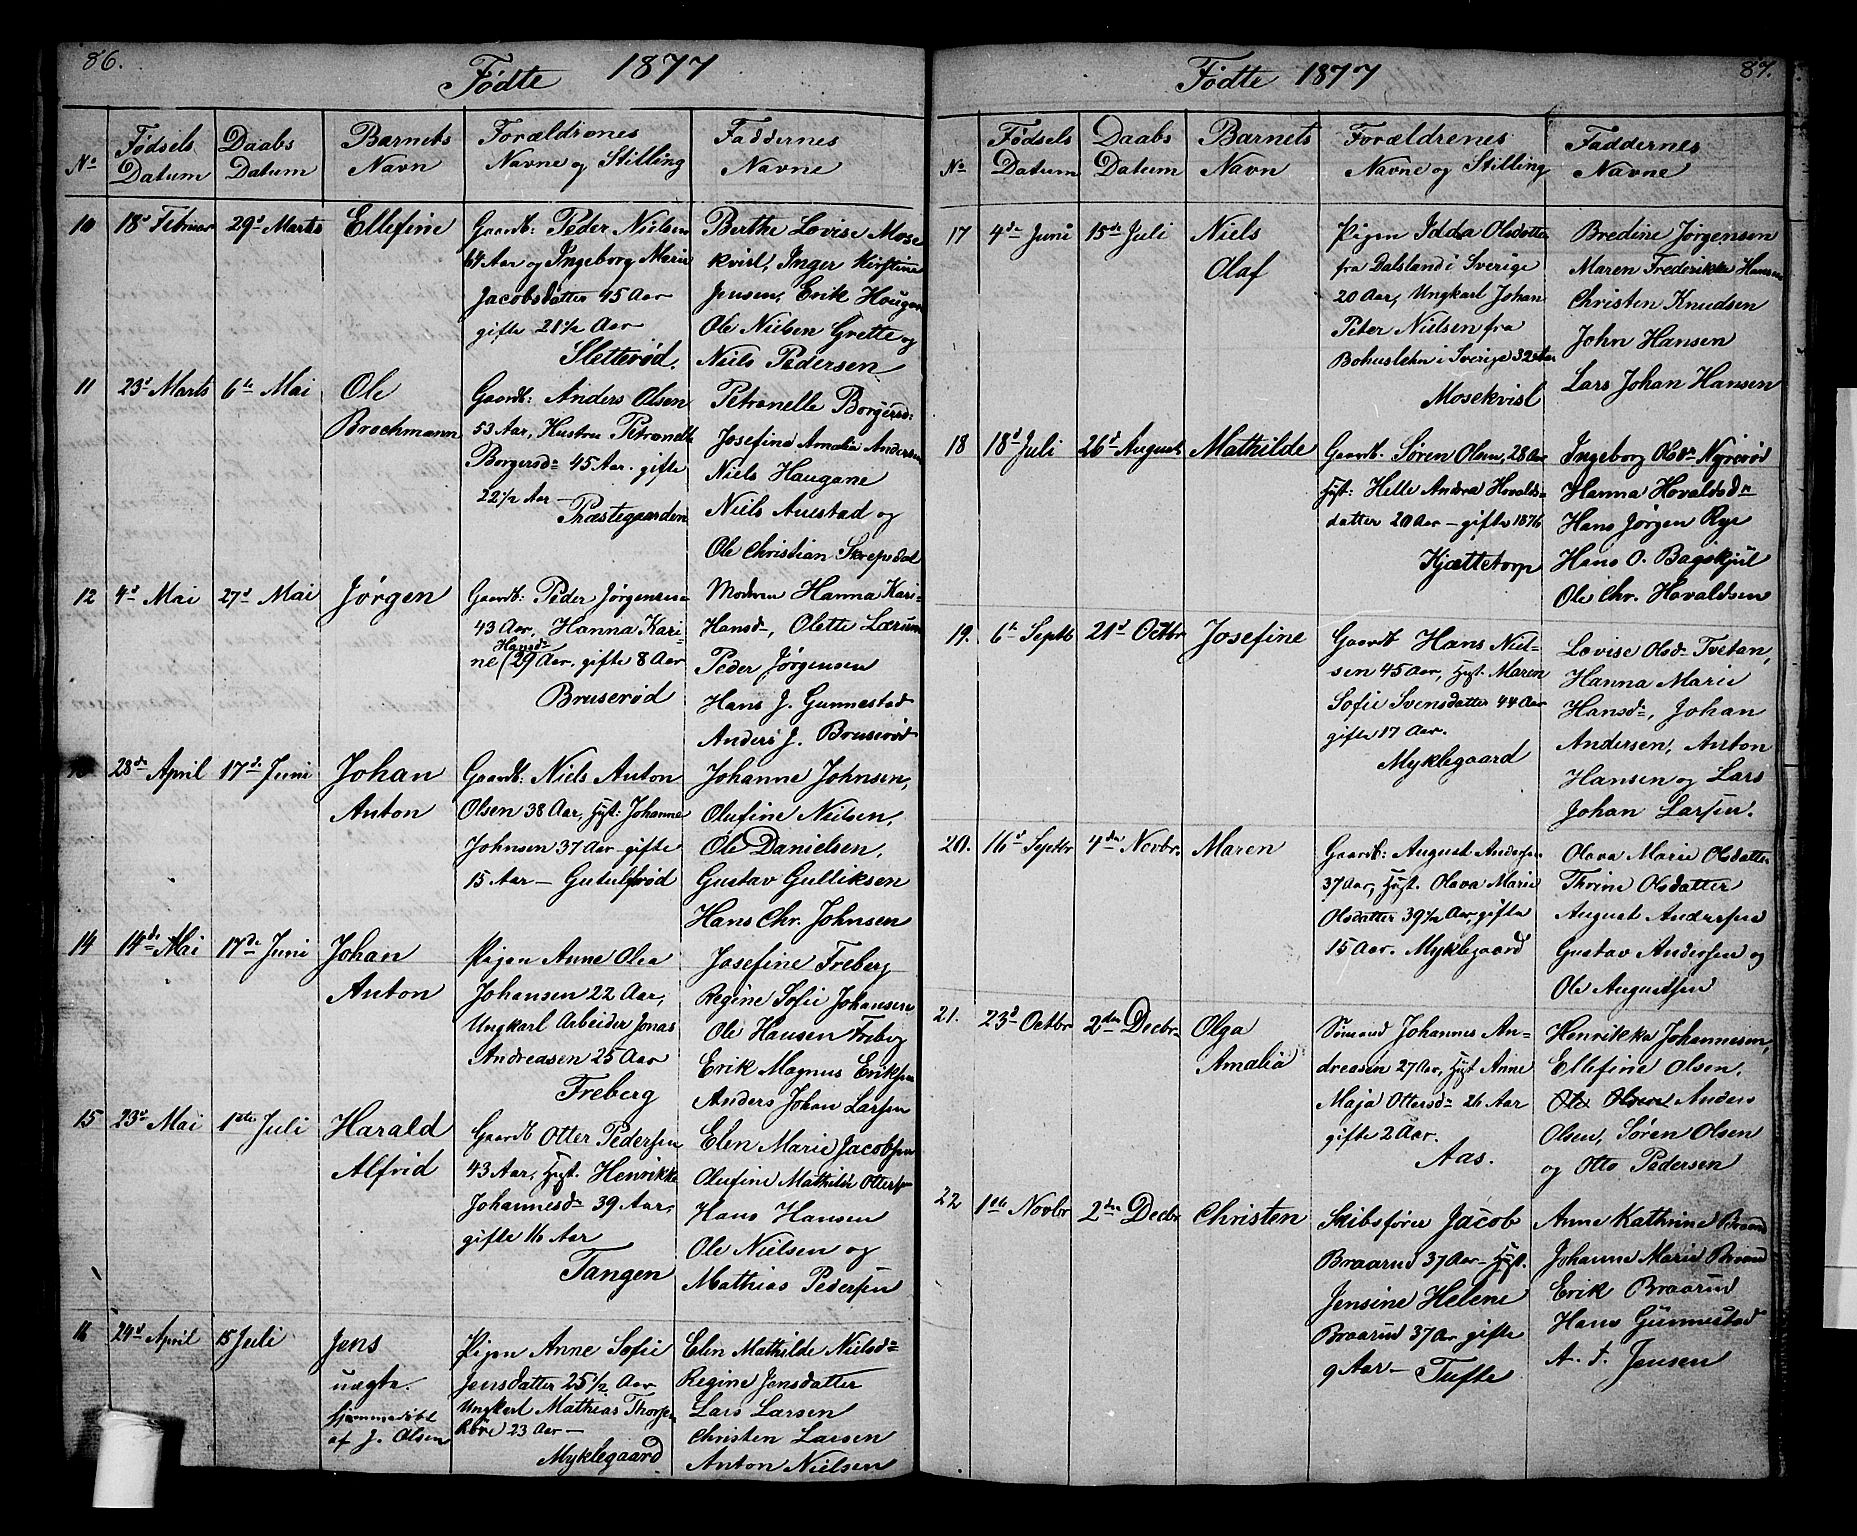 86.
Fødte 1877
No
Fødsels Datum
Daabs Datum
Barnets Navn
Forældrenes Navne og Stilling
Faddernes Navne
10
18d Februar
29d Marts
Ellefine
Gaardb: Peder Nielsen
64 Aar og Ingeborg Marie
Jacobsdatter 45 Aar
gifte 21 1/2 Aar
Sletterød.
Berthe Lovise Mose
kvisl, Inger Kirstine
Jensen, Erik Hougen
Ole Nielsen Grette og
Niels Pedersen
11
23d Marts
6te Mai
Ole
Brochmann
Gaardb: Anders Olsen
53 Aar, Hustru Petronelle
Borgersd. 45 Aar. gifte
22 1/2 Aar –
Præstegaarden
Petronelle Borgersd:
Josefine Amalia Andersen
Niels Haugane
Niels Auestad og
Ole Christian Skrepsdal
12
4d Mai
27d Mai
Jørgen
Gaardb: Peder Jørgensen
43 Aar, Hanna Kari-
Hansd.
ne (29 Aar, gifte 8 Aar
Bruserød
Moderen Hanna Kari-
Hansd., Olette Lærum
Peder Jørgensen
Hans J. Gunnestad
Anders J. Bruserød
28de April
17de Juni
Johan
Anton
Gaardb: Niels Anton
Olsen 38 Aar, Hust: Johanne
Johnsen 37 Aar – gifte
15 Aar –
Johanne Johnsen,
Olufine Nielsen,
Ole Danielsen,
Gustav Gulliksen
Hans Chr. Johnsen
14
14de Mai
17de Juni
Johan
Anton
Pigen Anne Olea
Johansen 22 Aar,
Ungkarl Arbeider Jonas
Andreasen 25 Aar
Freberg
Josefine Freberg
Regine Sofie Johansen
Ole Hansen Freberg
Erik Magnus Eriksen
Anders Johan Larsen
15
23d Mai
1ste Juli
Harald
Alfrid
Gaardb Otter Pedersen
43 Aar, Hust. Henrikke
Johannesd. 39 Aar,
gifte 16 Aar
Tangen
Elen Marie Jacobsen
Olufine Mathilde Ottersd.
Hans Hansen
Ole Nielsen og
Mathias Pedersen
16
24d April
15 Juli
Jens
uægte.
hjemmedøbt
af J. Olsen
Pigen Anne Sofie
Jensdatter 25 1/2 Aar
Ungkarl Mathias
23 Aar –
Myklegaard
Elen Mathilde Nielsd.
Regine Jensdatter
Lars Larsen
Christen Larsen
Anton Nielsen
87.
Fødte 1877
No
Fødsels Datum
Daabs Datum
Barnets Navn
Forældrenes Navne og Stilling
Faddernes Navne
17
4de Juni
15de Juli
Niels
Olaf
Pigen Idda Olsdatter
fra Dalsland i Sverige
20 Aar, Ungkarl Johan
Peter Nielsen fra
Bohuslehn i Sverige 32 Aar
Mosekvisl
Bredine Jørgensen
Maren Frederikke Hansen
Christen Knudsen
John Hansen
Lars Johan Hansen
18
18d Juli
26d August
Mathilde
Gaardb. Søren Olsen, 28 Aar
Hust: Helle Andrea Hovalds-
datter 20 Aar – gifte 1876
Kjættetorp
Ingeborg Olsdr Nyrerød
Hanna Hovaldsdr
Hans Jørgen Rye
Hans O. Bagskjul
Ole Chr. Havaldsen
19.
6te Septbr
21d Octbr
Josefine
Gaardb Hans Niel-
sen 45 Aar, Hust. Maren
Sofie Svensdatter 44 Aar
gifte 17 Aar.
Myklegaard
Lovise Olsd. Tvetan,
Hanna Marie
Hansd., Johan
Andersen, Anton
Hansen og Lars
Johan Larsen.
20.
16d Septbr
4de Novbr.
Maren
Gaardb: August Andersen
37 Aar, Hust. Olava Marie
Olsdatter 39 1/2 Aar, gifte
15 Aar. Myklegaard
Olava Marie Olsdatter
Thrine Olsdatter
August Andersen
Gustav Andersen og
Ole Augustsen
21.
23d Octbr
2den Decbr.
Olga
Amalia
Sømand Johannes An-
dreasen 27 Aar, Hust Anne
Maja Ottersd. 26 Aar
gifte 2 Aar.
Aas.
Henrikke Johannesen,
Ellefine Olsen,
Ole Olsen Anders
Olsen, Søren Olsen
og Otto Pedersen
22
1ste Novbr
2den Decbr
Christen
Skibsfører Jacob
Braarud 37 Aar – Hust.
Jensine Helene
Braarud 37 Aar gifte
9 Aar – Tufte
Anne Kathrine Braarud
Johanne Marie Braarud
Erik Braarud
Hans Gunnestad
A. F. Jensen